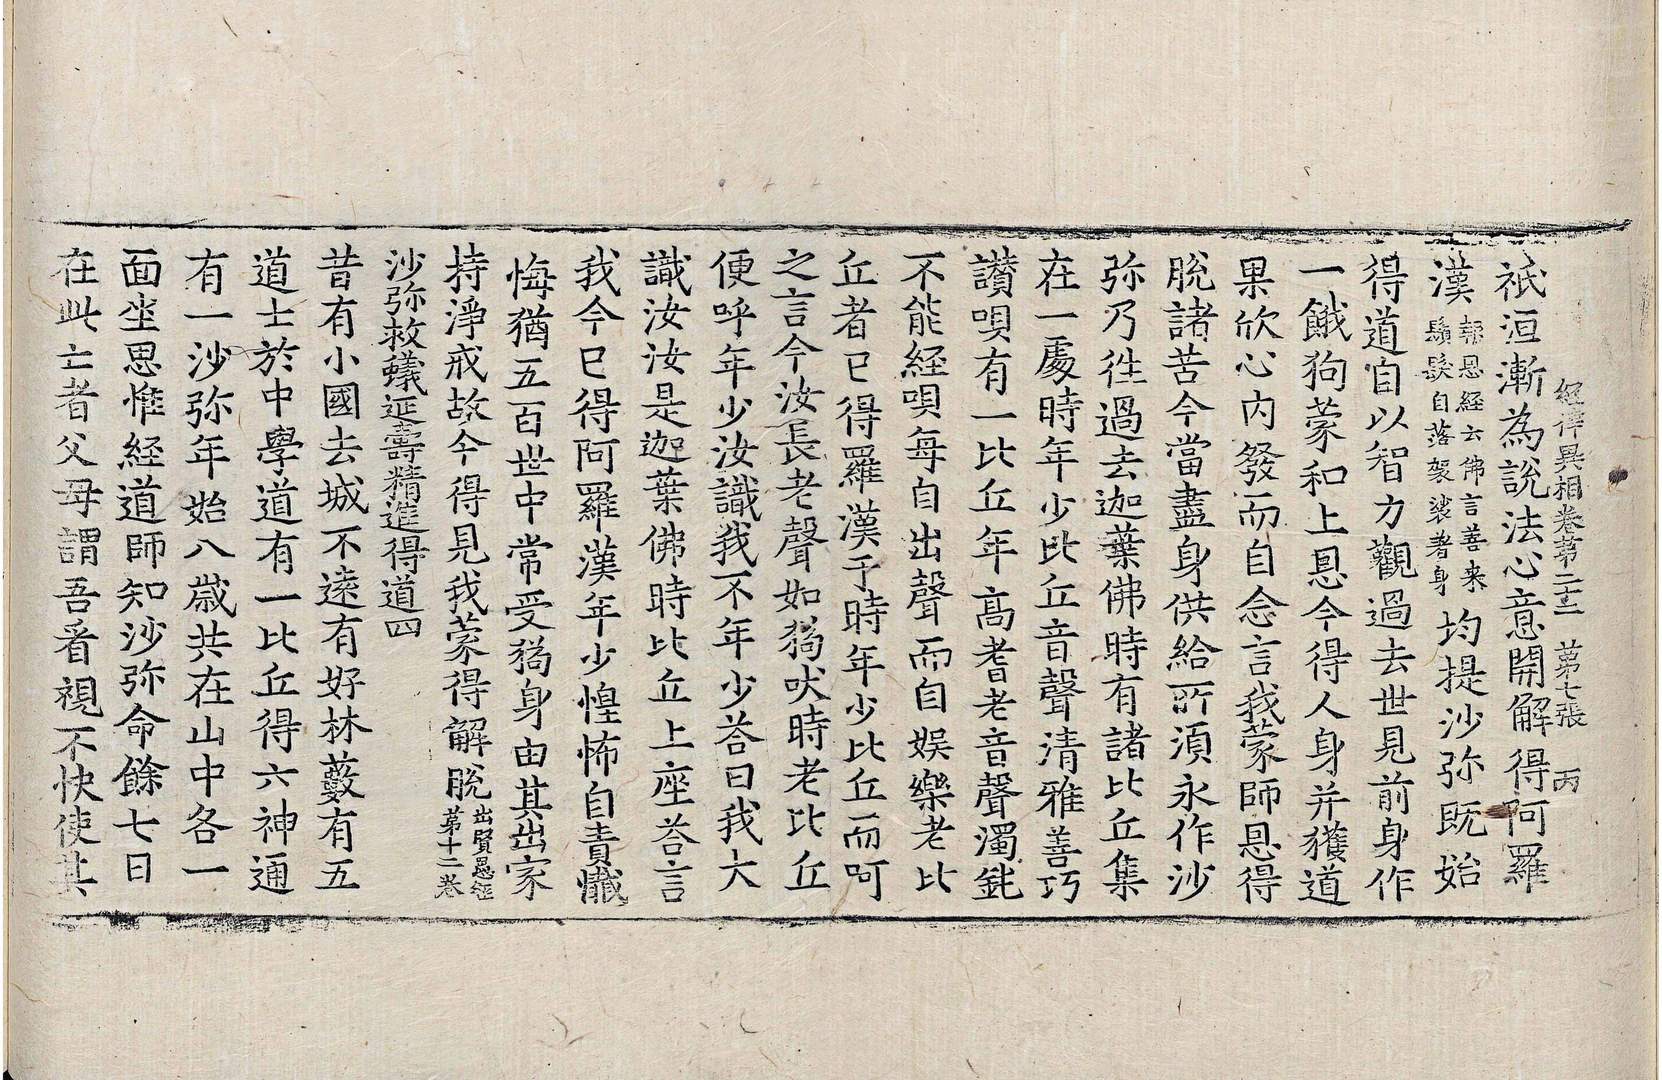 經律異相卷第二十二　第七張　丙
祇洹漸為說法心意開解得阿羅
漢報恩經云佛言善来鬚髮自落袈裟著身均提沙弥既始
得道自以智力觀過去世見前身作
一餓狗蒙和上恩今得人身并獲道
果欣心內發而自念言我蒙師恩得
脫諸苦今當盡身供給所須永作沙
弥乃往過去迦葉佛時有諸比丘集
在一處時年少比丘音聲清雅善巧
讃唄有一比丘年高耆老音聲濁鈍
不能經唄每自出聲而自娛樂老比
丘者已得羅漢于時年少比丘而呵
之言今汝長老聲如狗吠時老比丘
便呼年少汝識我不年少荅曰我大
識汝汝是迦葉佛時比丘上座荅言
我今已得阿羅漢年少惶怖自責懺
悔猶五百世中常受狗身由其出家
持淨戒故今得見我蒙得解脫出賢愚經第十二卷
沙弥救蟻延壽精進得道四
昔有小國去城不遠有好林藪有五
道士於中學道有一比丘得六神通
有一沙弥年始八歲共在山中各一
面坐思惟經道師知沙弥命餘七日
在此亡者父母謂吾看視不快使其